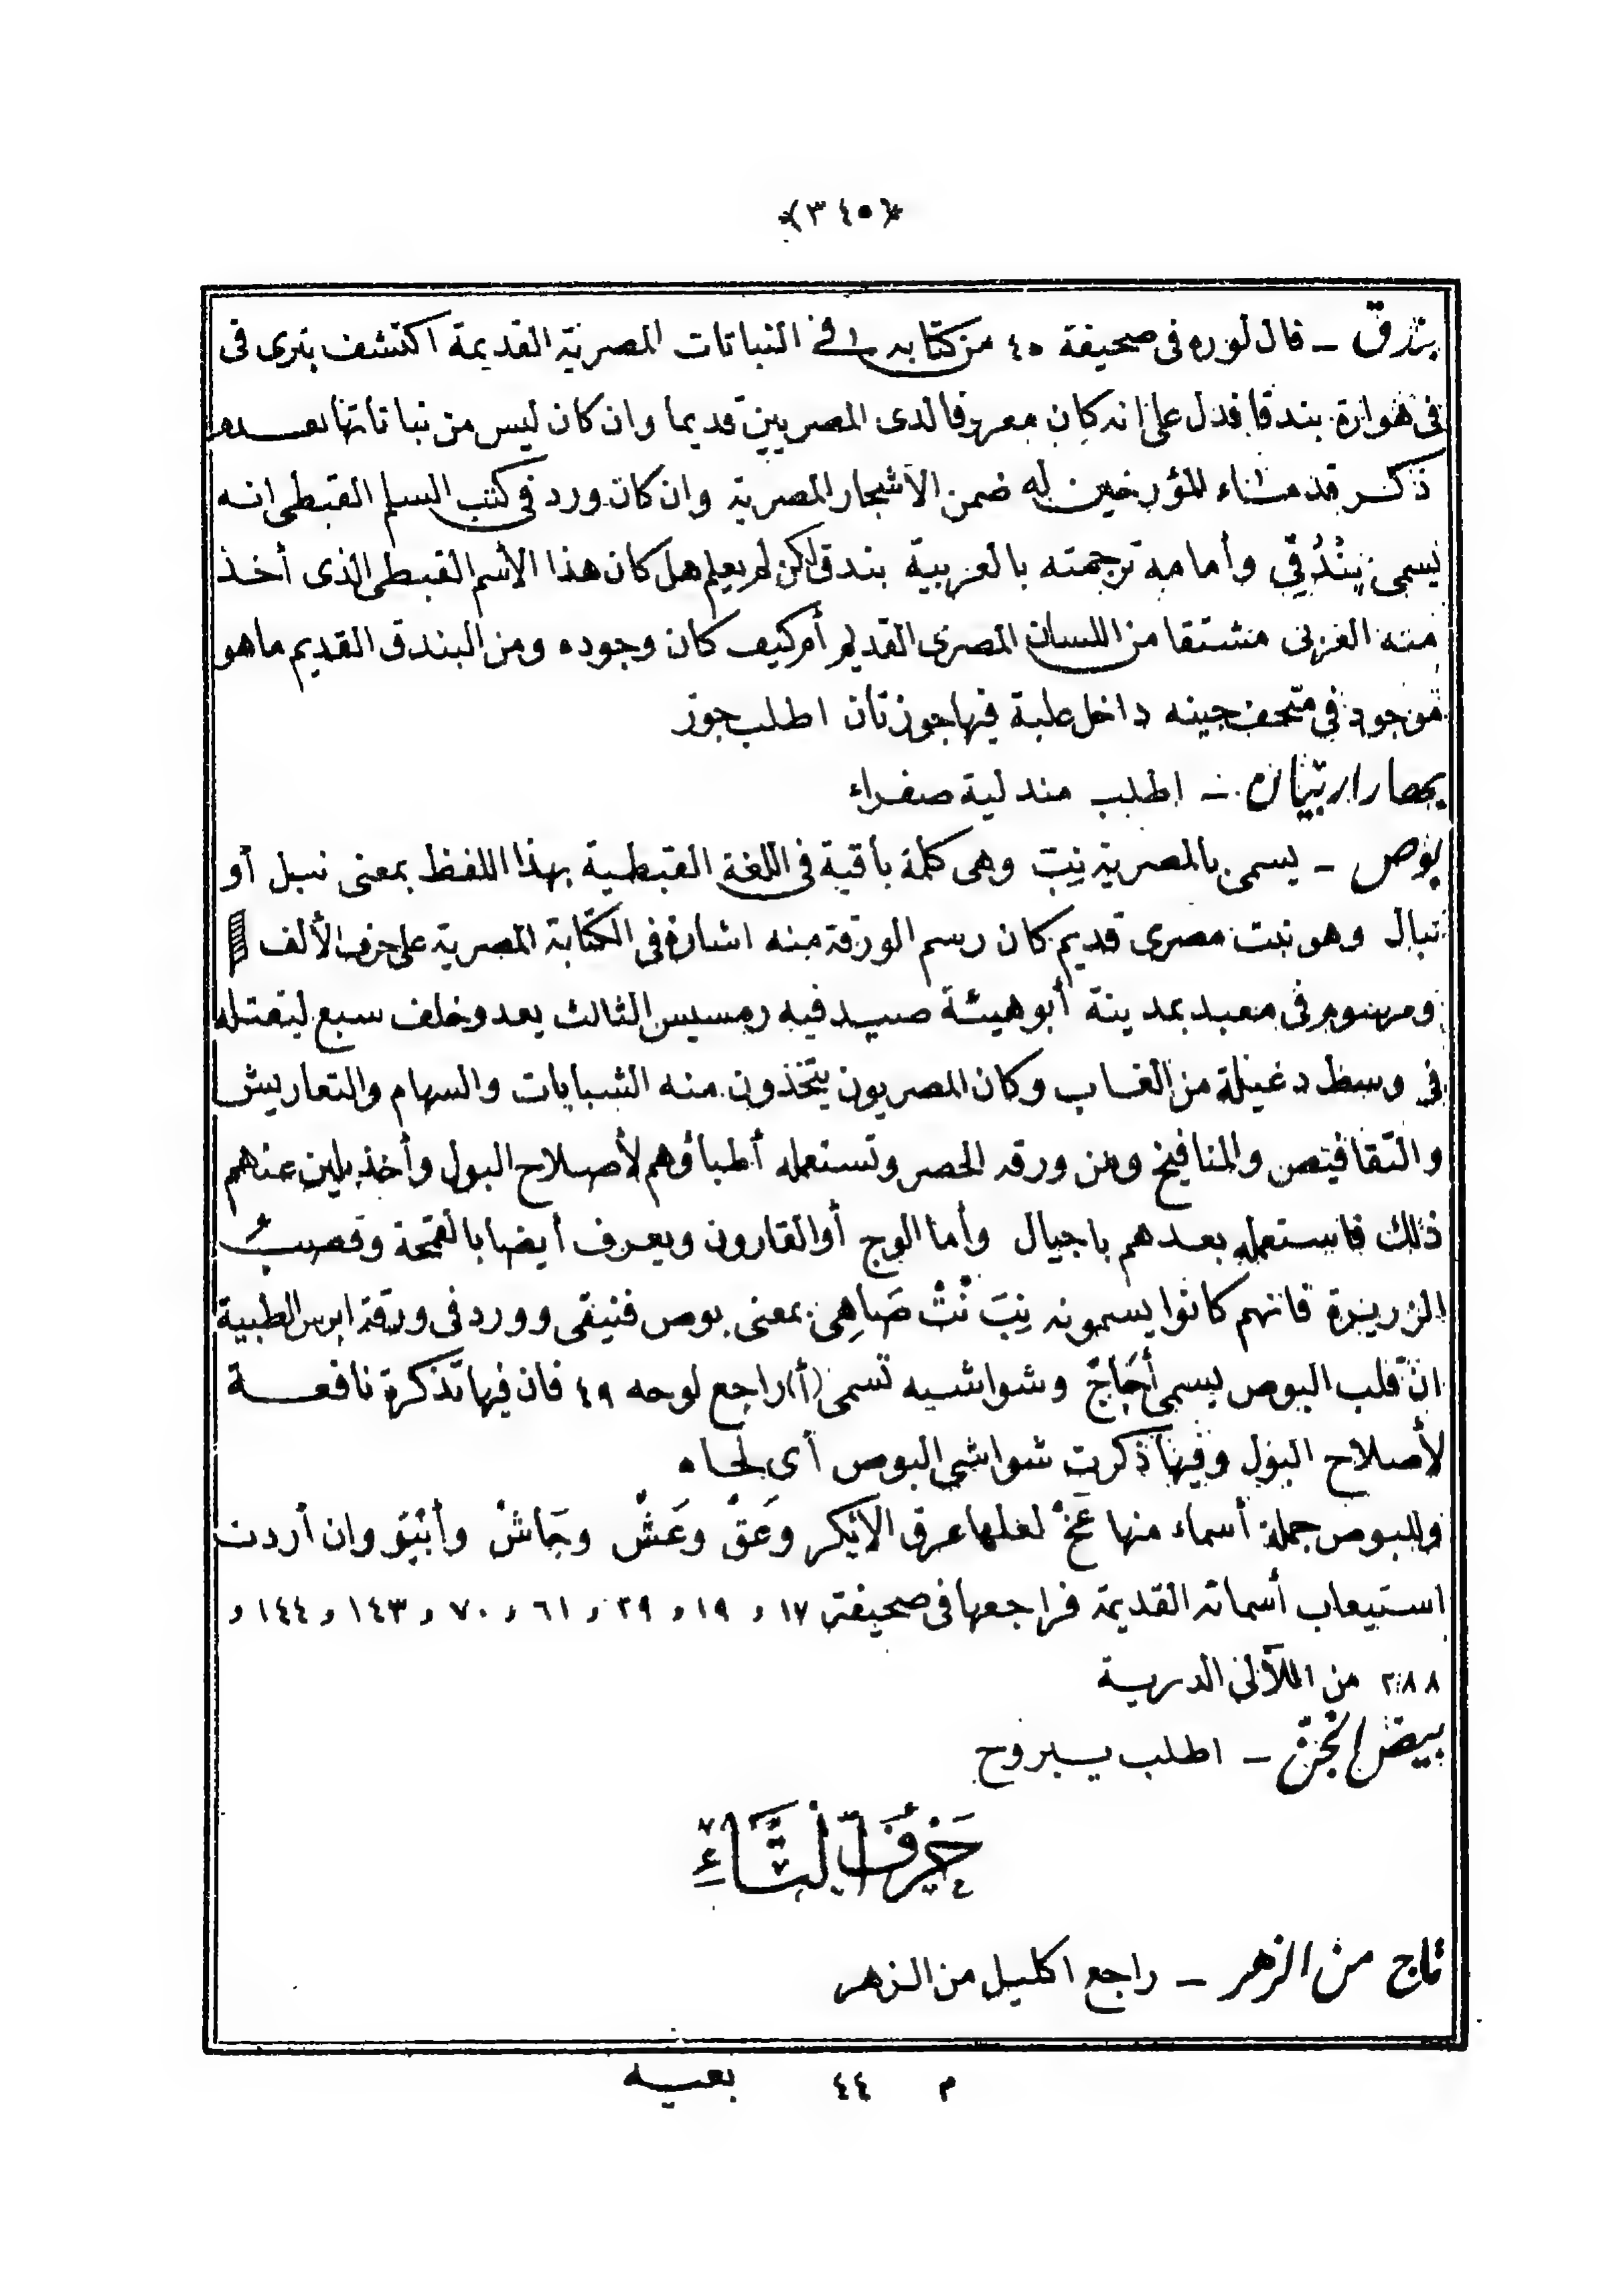 ﴿٣٤٥﴾
بندق – قال لوره فى صحيفة ٤٥ من كتابه فى النباتات المصرية القديمة اكتشف بترى فى
فى هوارة بندقا فدل على انه كان معروفا لدى المصريين قديما وان كان ليس من نباتاتها لعدم
ذكر قدماء المؤرخين له ضمن الأشجار المصرية وان كان ورد فى كتب السلم القبطى انه
يسمى بِنْدُقِى وأمامه ترجمته بالعربية بندق لكن لم يعلم هل كان هذا الأسم القبطى الذى أخذ
منه العربى مشتقا من اللسان المصرى القديم أم كيف كان وجوده ومن البندق القديم ما هو
موجود فى متحف جينه داخل علبة فيها جوزتان اطلب جوز
– اطلب مندلية صفراء
بوص – يسمى بالمصرية نِبَ وهى كلمة باقية فى اللغة القبطية بهذا اللفظ بمعنى نبل أو
نبال وهو نبت مصرى قديم كان رسم الورقة منه اشارة فى الكتابة المصرية على حرف الألف
ومرسوم فى معبد بمدينة أبو هيئة صيد فيه رمسيس الثالث يعدو خلف سبع ليقتله
فى وسط دغيلة من الغاب وكان المصريون يتخذون منه الشبابات والسهام والتعاريش
والتقافيص والمنافيخ ومن ورقه الحصر وتستعمله أطباؤهم لأصلاح البول وأخذ بلين عنهم
ذلك فاستعمله بعدهم باجيال وأما الوج أو القارون ويعرف أيضا بالقمحة وقصب
الزريرة فانهم كانوا يسمونه نِبَ نْتْ صَاهِى بمعنى بوص فنيقى وورد فى ورقة ابرس الطبية
انّ قلب البوص يسمى أجَاجْ وشواشيه تسمى (أ) راجع لوحه ٤٩ فان فيها تذكرة نافعة
لأصلاح البول وفيها ذكرت شواشى البوص أى لحاه
وللبوص جملة أسماء منها عَخْ لعلها عرق الأيكر وعَقْ وعَشْ وجَاشْ وأبْيَو وان أردت
استيعاب أسمائه القديمة فراجعها فى صحيفة ١٧ و ١٩ و ٣٩ و ٦١ و ٧٠ و ١٤٣ و ١٤٤ و
٢٨٨ من اللآلئ الدرية
بيض الجن – اطلب يبروح
حَرْفُ التَّاءِ
تاج من الزهر – راجع اكليل من الزهر
م ٤٤ بغيه